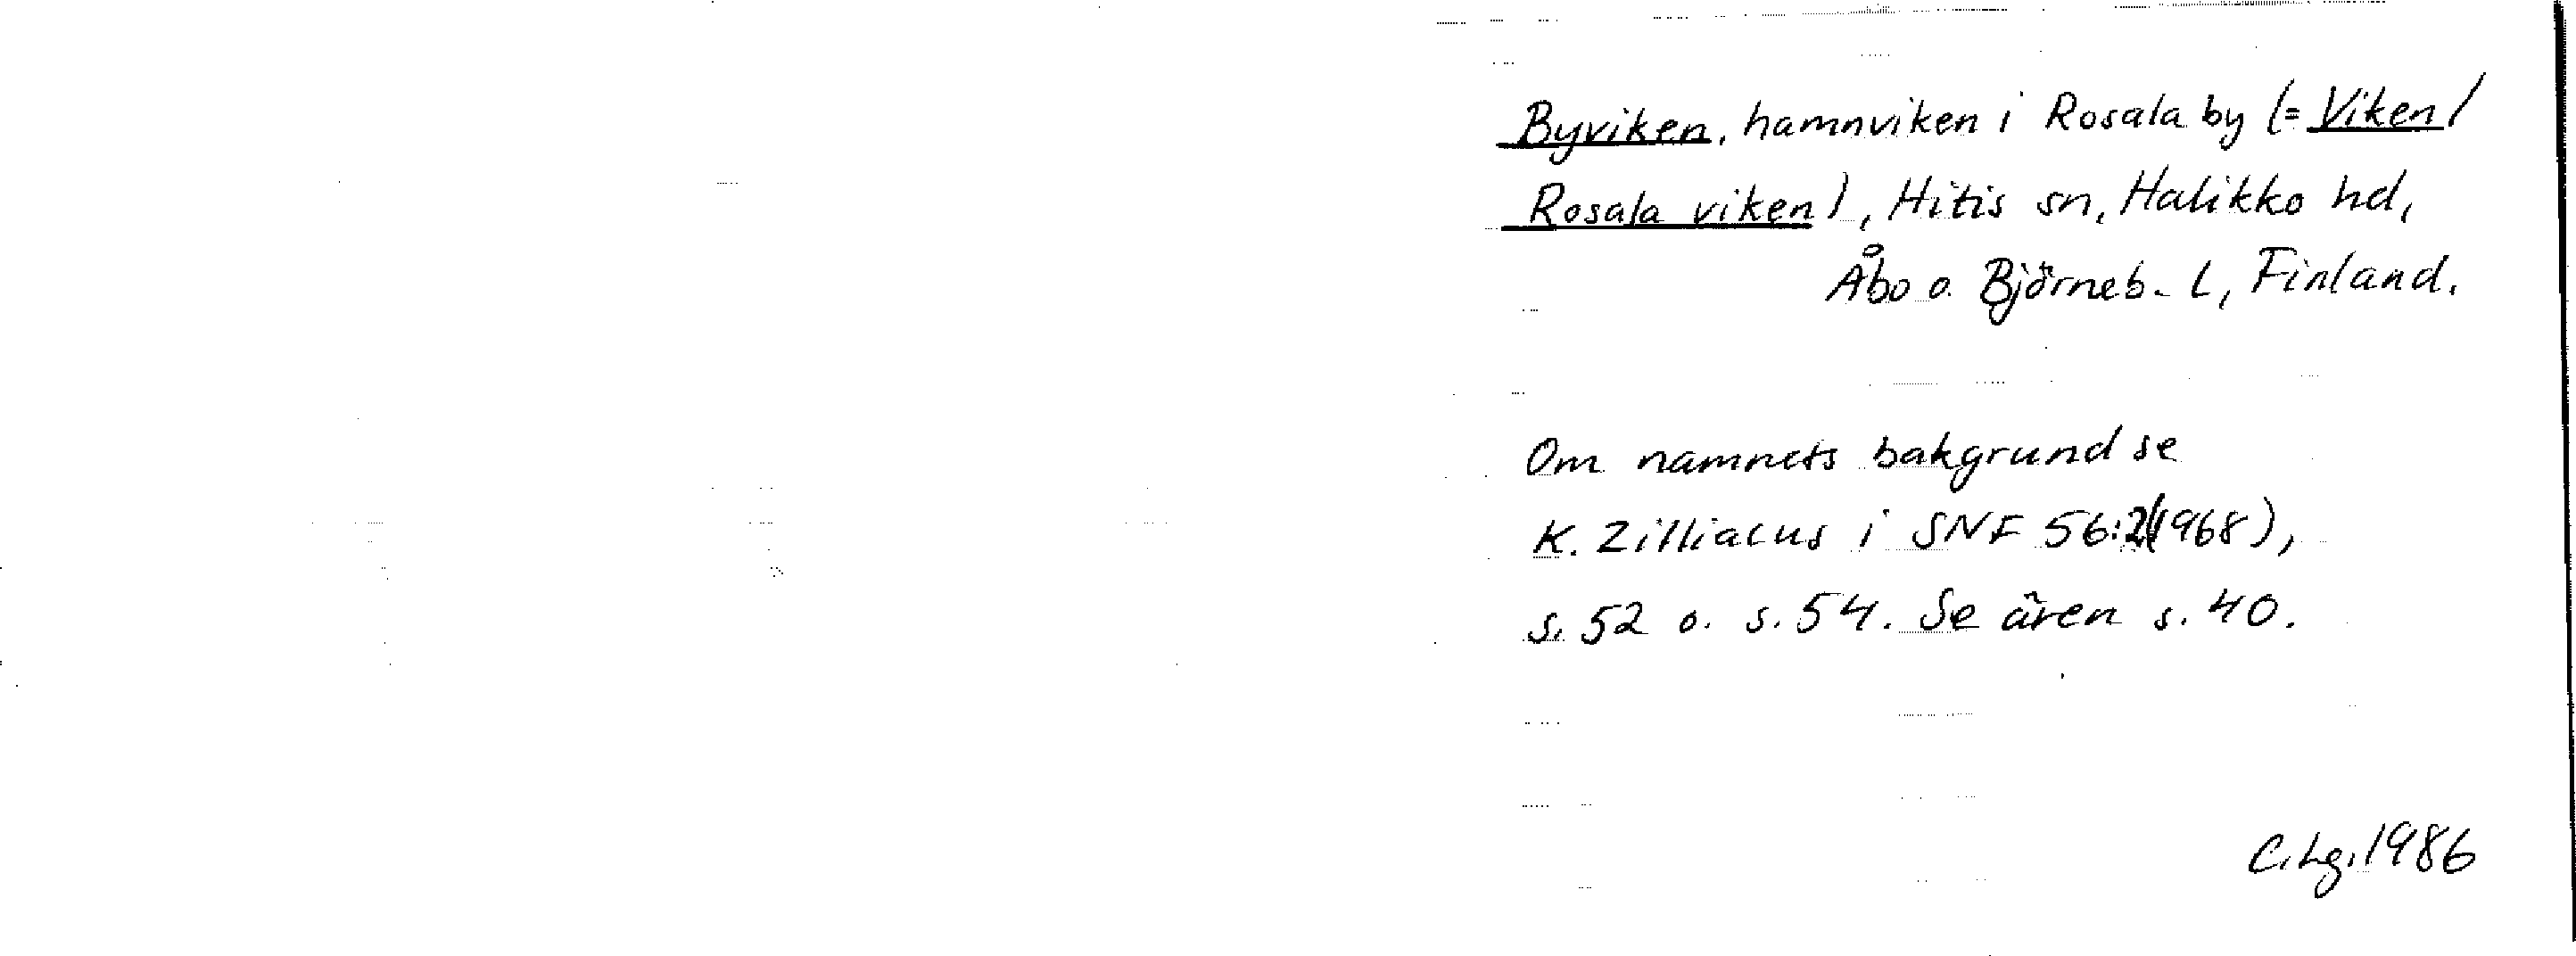 Byviken, hamnviken i Rosala by (= Viken/
Rosala viken), Hitis sn, Halikko hd,
Åbo o. Björneb. L, Finland.
Om namnets bakgrund se
K. Zilliacus i SNF 56:2(1968),
s. 52 o. s. 54. Se även s. 40.
C.Lg. 1986